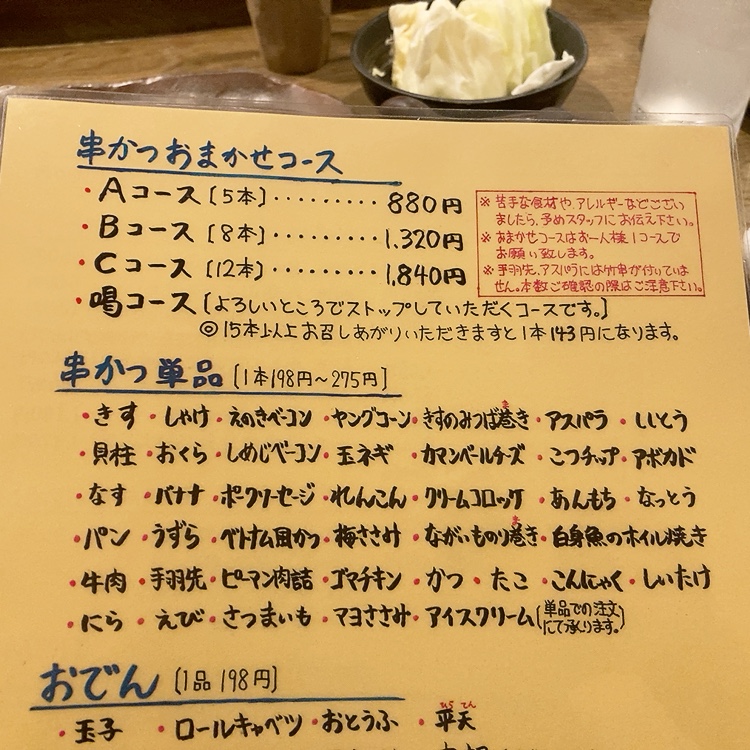 串かつおまかせコース
・Aコース〔5本〕・・・・・・・・・880円
・Bコース〔8本〕・・・・・・・・・1,320円
・Cコース〔12本〕・・・・・・・・1,840円
・喝コース〔よろしいところでストップしていただくコースです。〕
◎15本以上お召しあがりいただきますと1本143円になります。
※苦手な食材や、アレルギーなどござい
ましたら、予めスタッフにお伝え下さい。
※おまかせコースはお一人様1コースで
お願い致します。
※手羽先、アスパラには竹串が付いていま
せん。本数ご確認の際はご注意下さい。
串かつ単品〔1本198円〜275円〕
・きす・しゃけ・えのきベーコン・ヤングコーン・きすのみつば巻き・アスパラ・ししとう
・貝柱・おくら・しめじベーコン・玉ネギ・カマンベールチーズ・こつチップ・アボカド
・なす・バナナ・ポークソーセージ・れんこん・クリームコロッケ・あんもち・なっとう
・パン・うずら・ベトナム風かつ・梅ささみ・ながいものり巻き・白身魚のホイル焼き
・牛肉・手羽先・ピーマン肉詰・ゴマチキン・かつ・たこ・こんにゃく・しいたけ
・にら・えび・さつまいも・マヨささみ・アイスクリーム(単品での注文にて承ります。)
おでん〔1品198円〕
・玉子・ロールキャベツ・おとうふ・平天